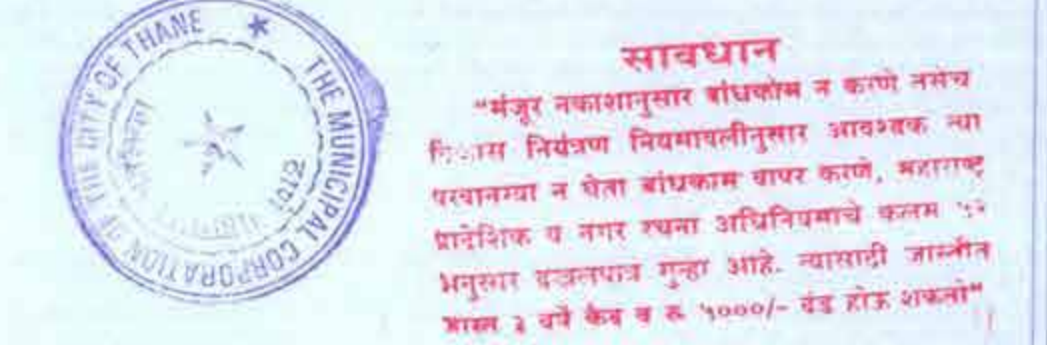 THE MUNICIPAL CORPORATION OF THE CITY OF THANE
सावधान
"मंजूर नकाशानुसार बांधकाम न करणे तसेच
विकास नियंत्रण नियमावलीनुसार आवश्यक त्या
परवानग्या न घेता बांधकाम वापर करणे, महाराष्ट्र
प्रादेशिक व नगर रचना अधिनियमाचे कलम ५२
अनुसार दखलपात्र गुन्हा आहे. त्यासाठी जास्तीत
जास्त ३ वर्षे कैद व रु ५०००/- दंड होऊ शकतो"